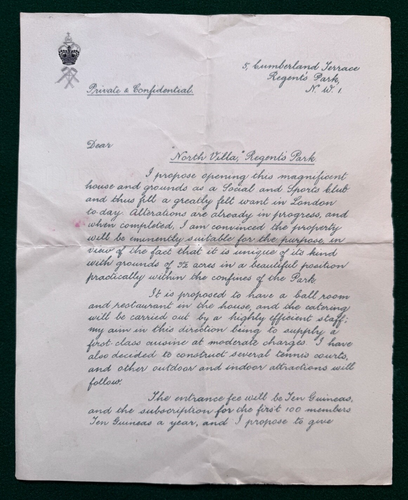 5, Cumberland Terrace
Regent's Park,
N. W. 1.
Private & Confidential.
Dear
"North Villa," Regent's Park
I propose opening this magnificent
house and grounds as a Social and Sports Club
and thus fill a greatly felt want in London
to day. Alterations are already in progress, and
when completed, I am convinced the property
will be eminently suitable for the purpose in
view of the fact that it is unique of its kind
with grounds of acres in a beautiful position
practically within the confines of the Park
It is proposed to have a ball room
and restaurant in the house, and the catering
will be carried out by a highly efficient staff;
my aim in this direction being to supply a
first class cuisine at moderate charges. I have
also decided to construct several tennis courts,
and other outdoor and indoor attractions will
follow.
The entrance fee will be Ten Guineas,
and the subscription for the first 100 members
Ten Guineas a year, and I propose to give